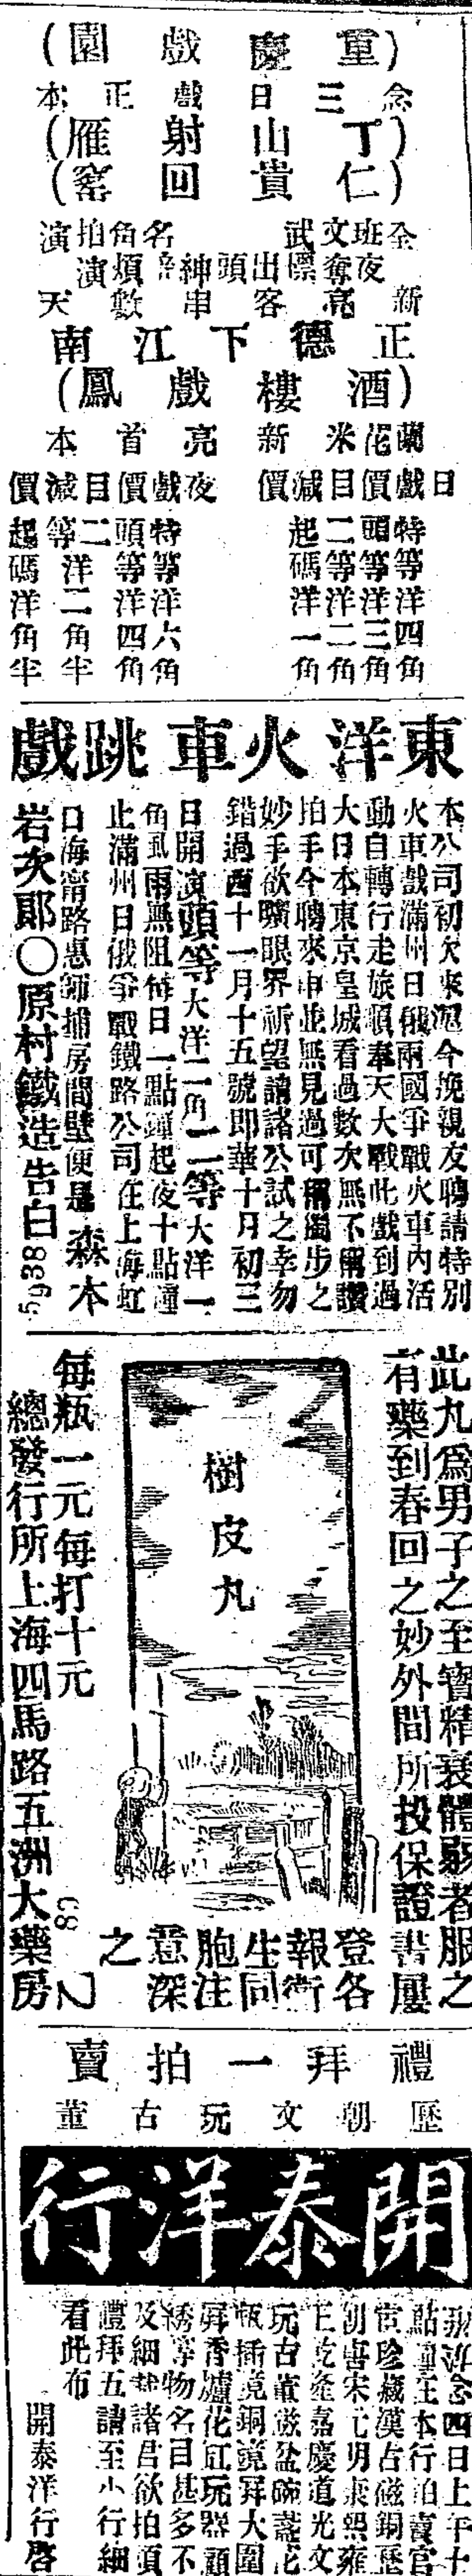 (重慶戲園)
念三日戲正本
(丁山射雁)
(仁貴回窰)
全班文武
夜奪
新亮
出客
頭
紳串
名角
頻數
拍演
演天
正德下江南
(酒樓戲鳳)
蘭花米新亮首本
日戲價目減價
特等洋四角
頭等洋三角
二等洋二角
起碼洋一角
夜戲價目減價
特等洋六角
頭等洋四角
二等洋二角半
起碼洋角半
東洋火車跳戲
本公司初次來滬今挽親友聘請特別
火車戲滿州日俄兩國爭戰火車內活
動自轉行走旅順奉天大戰此戲到過
大日本東京皇城看過數次無不稱讚
拍手今聘來申並無見過可稱獨步之
妙手欲曠眼界祈望請諸公試之幸勿
錯過酉十一月十五號即華十月初三
日開演頭等大洋二角二等大洋一
角風雨無阻每日一點鐘起夜十點鐘
止滿州日俄爭戰鐵路公司在上海虹
口海甯路惠師捕房間壁便是 森本
岩次郎〇原村鐵造告白 5938
此丸爲男子之至寶精衰體弱者服之
有藥到春回之妙外間所投保證書屢
登各
報衛
生同
胞注
意深
之
樹皮丸
每瓶一元每打十元
總發行所上海四馬路五洲大藥房
C8 乙
禮拜一拍賣
歷朝文玩古董
開泰洋行
念四日上午十
點鐘在本行拍賣官
珍藏漢占磁銅歷
朝唐宋元明康熙雍
正乾隆嘉慶道光文
玩古董磁盆碗盞花
瓶插鏡銅鏡屏大圍
屏香爐花缸玩器顧
綉等物名目甚多不
及細載諸君欲拍須
禮拜五請至小行細
看此布
開泰洋行啓